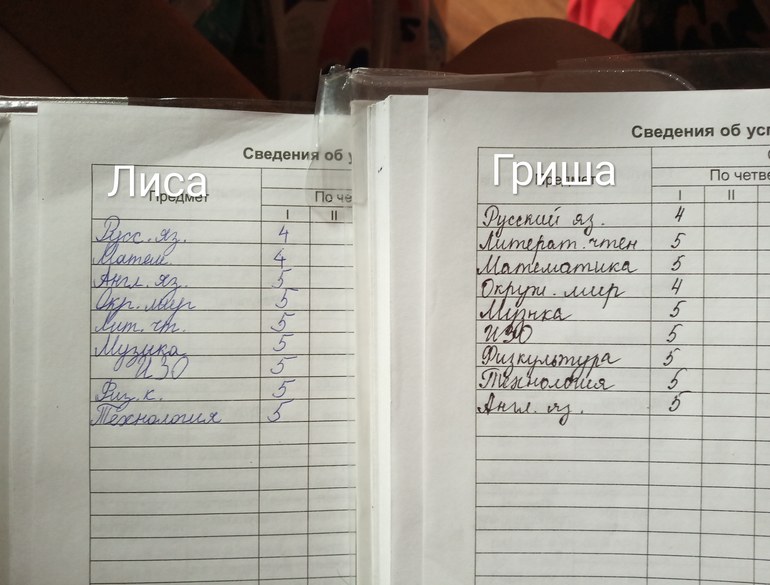 Сведения об у
Лиса
Предмет
По че
I II
Русс. яз. 4
Матем. 4
Англ. яз. 5
Окр. мир 5
Лит. чт. 5
Музыка 5
ИЗО 5
Физ. к. 5
Технология 5
Сведения об усп
Гриша
По четве
I II
Русский яз. 4
Литерат. чтен 5
Математика 5
Окруж. мир 4
Музыка 5
ИЗО 5
Физкультура 5
Технология 5
Англ. яз. 5